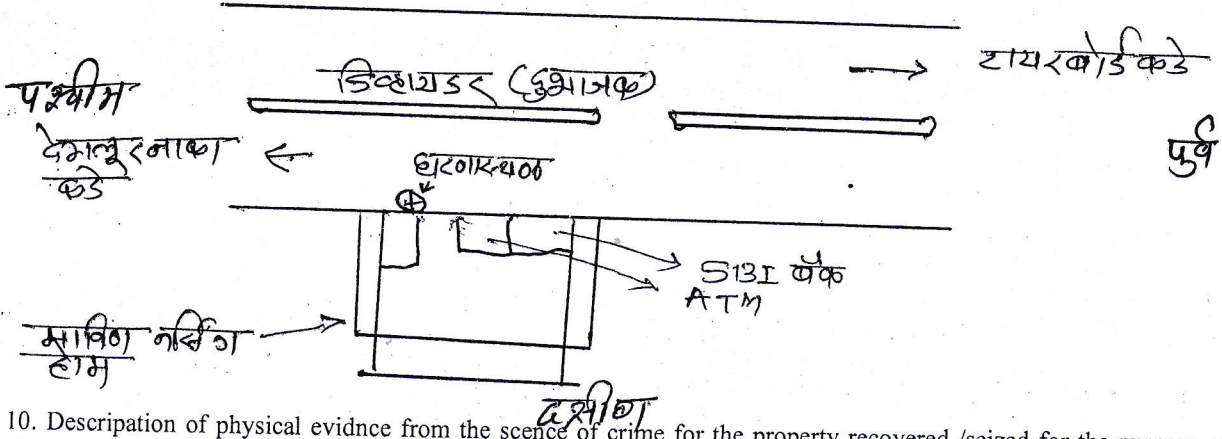 टायरबोर्ड कडे
पश्चीम
डिव्हायडर (दुभाजक)
देगलूर नाका
कडे
पुर्व
घटनास्थळ
SBI बँक
ATM
नर्सिंग
होम
दक्षीण
10. Descripation of physical evidnce from the scence of crime for the property recovered /seized for the